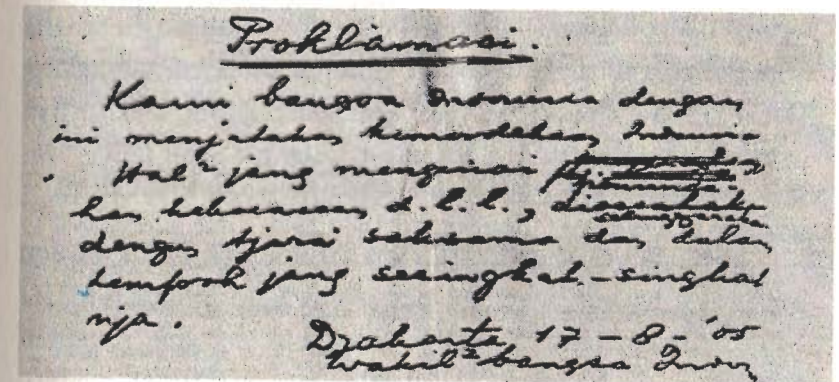 Proklamasi.
Kami bangsa Indonesia dengan
ini menjatakan kemerdekaan Indonesia
. Hal² jang mengenai
kan kekuasaan d.l.l.,
dengan tjara saksama dan dalam
tempoh jang sesingkat-singkat
nja.
Djakarta 17 - 8 - '05
Wakil² bangsa Indon